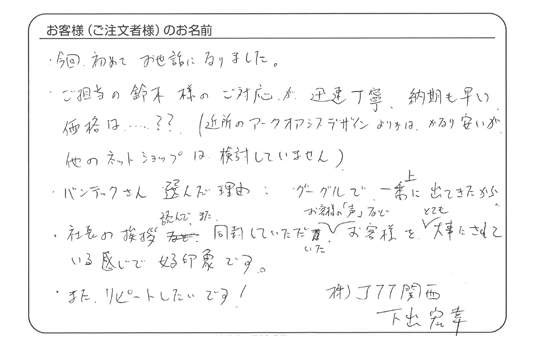 お客様（ご注文者様）のお名前
・今回、初めて お世話になりました。
・ご担当の 鈴木 様の ご対応が 迅速丁寧、納期も早い
価格は……？？（近所のアークオアシスデザインよりかは、かなり安いが、
他のネットショップは 検討していません）
・バンテックさん 選んだ理由： グーグルで 一番上に 出てきたから。
・社長の挨拶 読んで、また 同封していただいた お客様の「声」など お客様を とても 大事にされて
いる感じで 好印象です。
・また、リピートしたいです！
株）J77関西
下出 宏幸